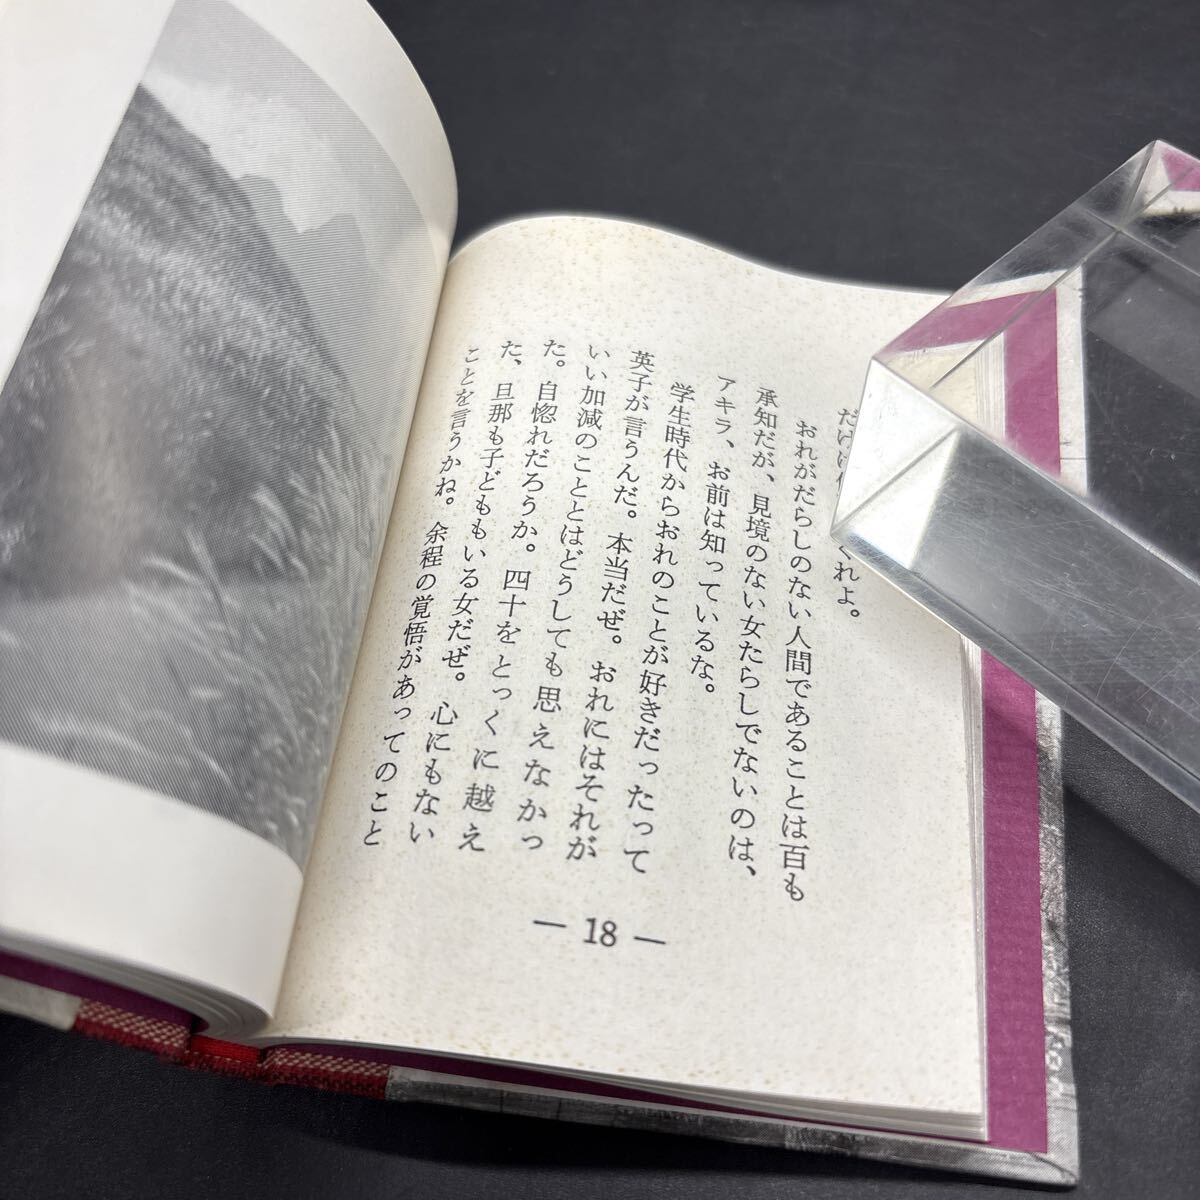 だけは
くれよ。
おれがだらしのない人間であることは百も
承知だが、見境のない女たらしでないのは、
アキラ、お前は知っているな。
学生時代からおれのことが好きだったって
英子が言うんだ。本当だぜ。おれにはそれが
いい加減のこととはどうしても思えなかっ
た。自惚れだろうか。四十をとっくに越え
た、旦那も子どももいる女だぜ。心にもない
ことを言うかね。余程の覚悟があってのこと
— 18 —